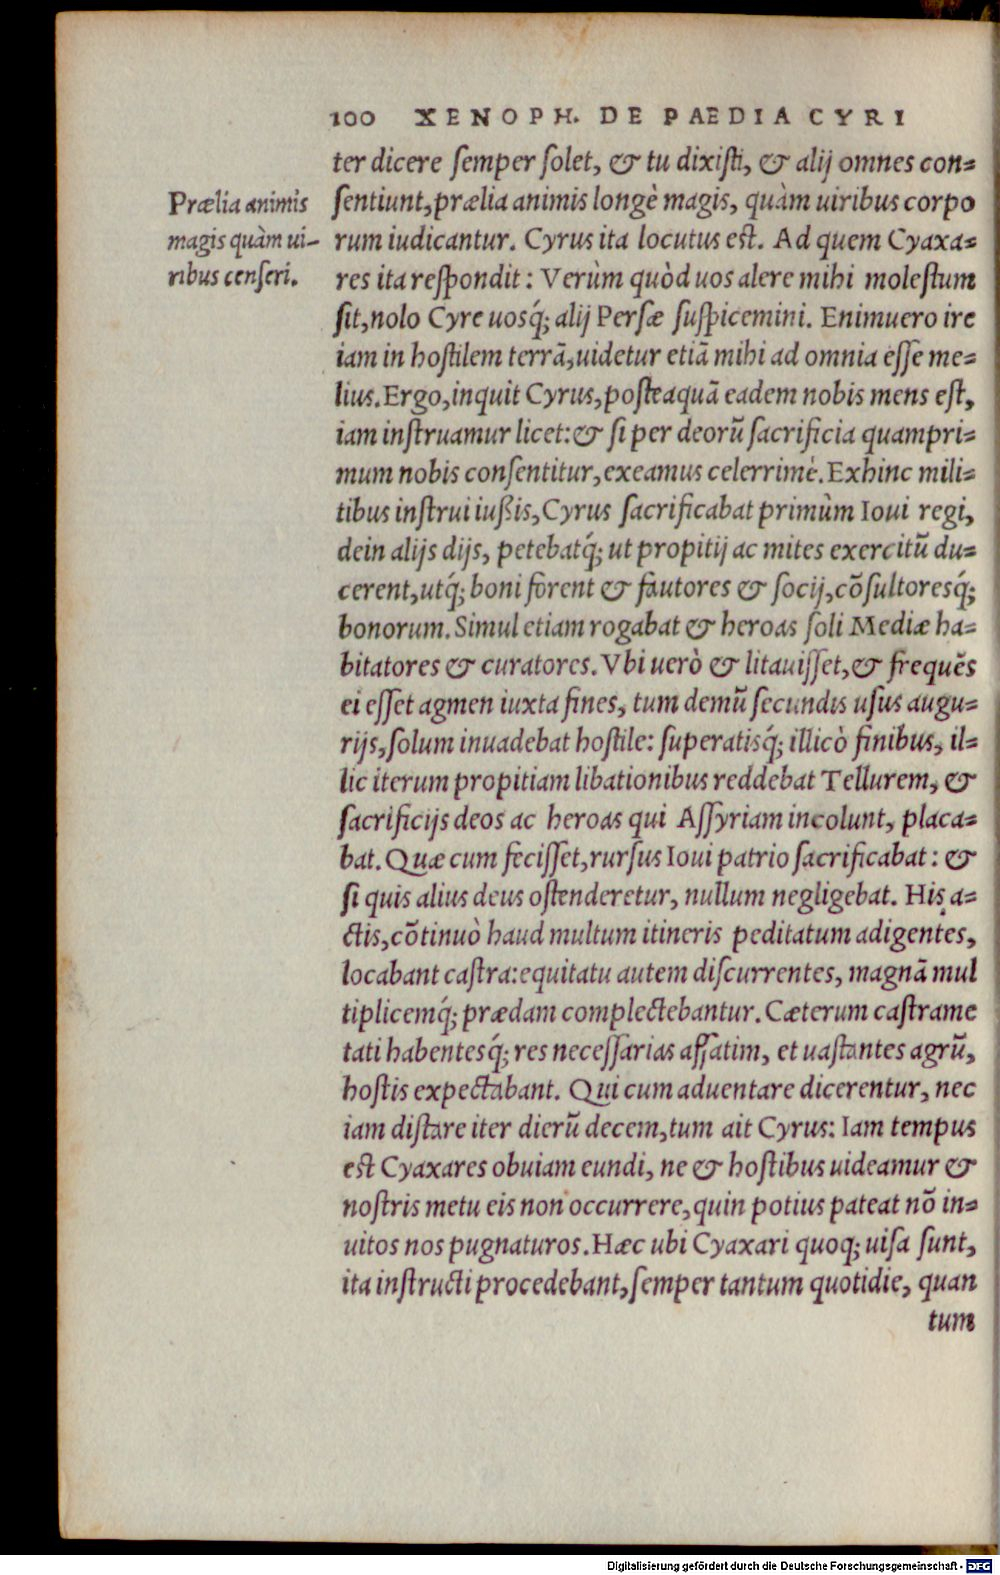 100 XENOPH. DE PAEDIA CYRI
ter dicere semper solet, & tu dixisti, & alij omnes con=
Prælia animis
magis quàm ui-
ribus censeri.
sentiunt, prælia animis longè magis, quàm uiribus corpo
rum iudicantur. Cyrus ita locutus est. Ad quem Cyaxa=
res ita respondit: Verùm quòd uos alere mihi molestum
sit, nolo Cyre uosq́; alij Persæ suspicemini. Enimuero ire
iam in hostilem terrã, uidetur etiã mihi ad omnia esse me=
lius. Ergo, inquit Cyrus, posteaquã eadem nobis mens est,
iam instruamur licet: & si per deorũ sacrificia quampri=
mum nobis consentitur, exeamus celerrimè. Exhinc mili=
tibus instrui iußis, Cyrus sacrificabat primùm Ioui regi,
dein alijs dijs, petebatq́; ut propitij ac mites exercitũ du=
cerent, utq́; boni forent & fautores & socij, cõsultoresq́;
bonorum. Simul etiam rogabat & heroas soli Mediæ ha=
bitatores & curatores. Vbi uerò & litauisset, & frequẽs
ei esset agmen iuxta fines, tum demũ secundis usus augu=
rijs, solum inuadebat hostile: superatisq́; illicò finibus, il=
lic iterum propitiam libationibus reddebat Tellurem, &
sacrificijs deos ac heroas qui Assyriam incolunt, placa=
bat. Quæ cum fecisset, rursus Ioui patrio sacrificabat: &
si quis alius deus ostenderetur, nullum negligebat. His a=
ctis, cõtinuò haud multum itineris peditatum adigentes,
locabant castra: equitatu autem discurrentes, magnã mul
tiplicemq́; prædam complectebantur. Cæterum castrame
tati habentesq́; res necessarias affatim, et uastantes agrũ,
hostis expectabant. Qui cum aduentare dicerentur, nec
iam distare iter dierũ decem, tum ait Cyrus: Iam tempus
est Cyaxares obuiam eundi, ne & hostibus uideamur &
nostris metu eis non occurrere, quin potius pateat nõ in=
uitos nos pugnaturos. Hæc ubi Cyaxari quoq; uisa sunt,
ita instructi procedebant, semper tantum quotidie, quan
tum
Digitalisierung gefördert durch die Deutsche Forschungsgemeinschaft - DFG